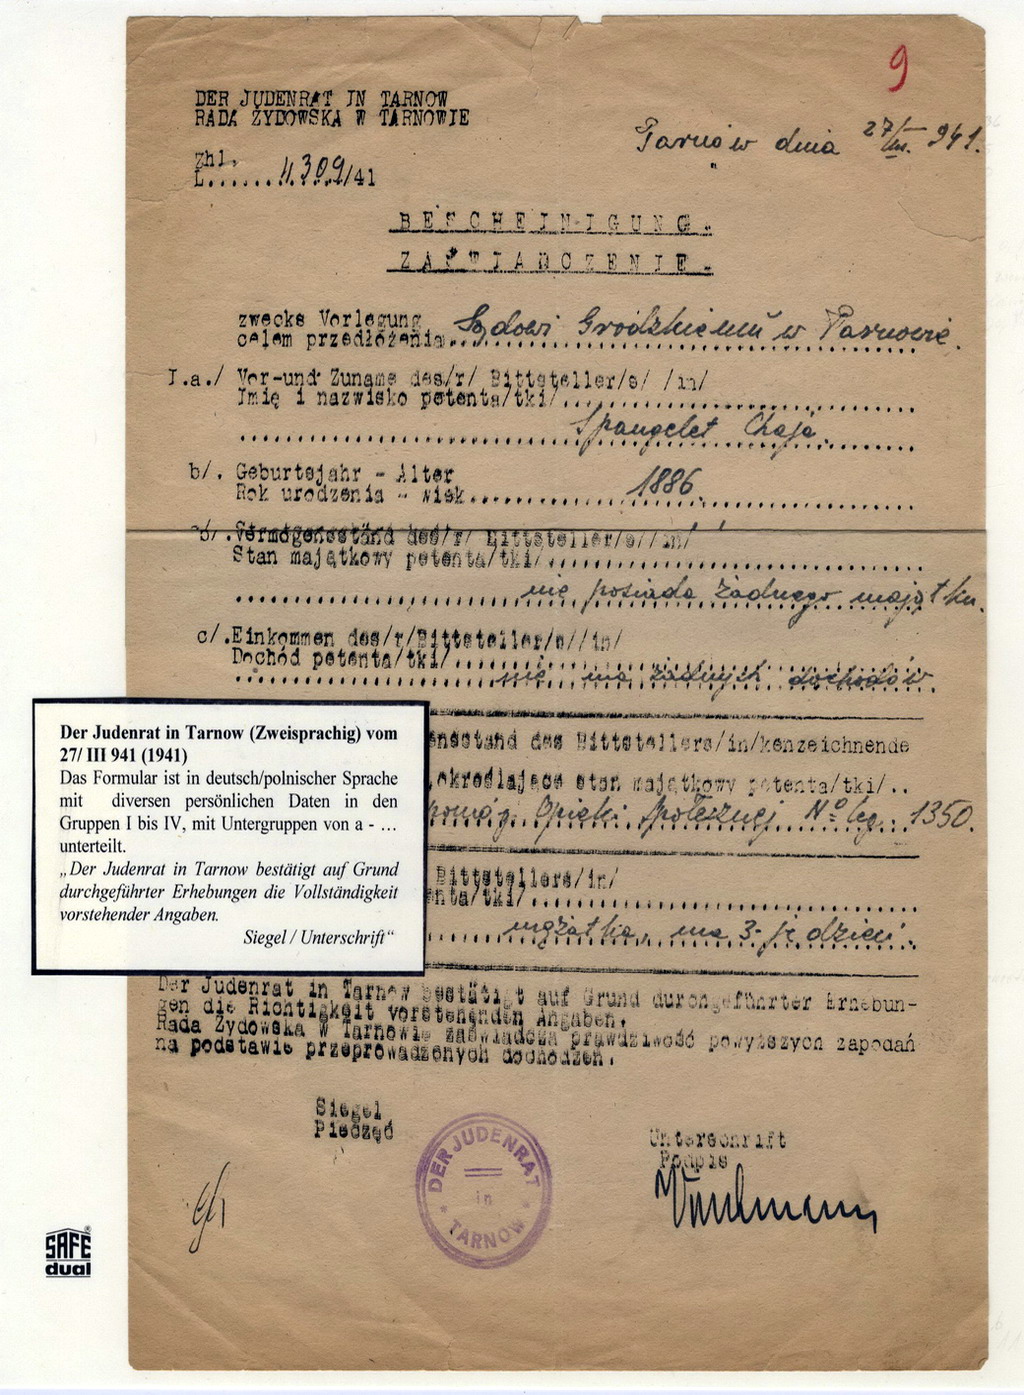 9
DER JUDENRAT IN TARNOW
RADA ŻYDOWSKA W TARNOWIE
Tarnów dnia 27/III. 941.
Zhl.
L.......4309/41
BESCHEINIGUNG.
ZAŚWIADCZENIE.
zwecks Vorlegung
celem przedłożenia.. Sądowi Grodzkiemu w Tarnowie.
I.a./ Vor-und Zuname des/r/ Bittsteller/s/ /in/
Imię i nazwisko petenta/tki/
Spangelet Chaja
b/. Geburtsjahr - Alter
Rok urodzenia - wiek 1886
b/. Vermögensstand des/r/ Bittsteller/s//in/
Stan majątkowy petenta/tki/
nie posiada żadnego majątku.
c/. Einkommen des/r/Bittsteller/s//in/
Dochód petenta/tki/
nie ma żadnych dochodów
ensstand des Bittstellers/in/kenzeichnende
określające stan majątkowy petenta/tki/..
Opieki Społecznej No leg. 1350.
Bittstellers/in/
nta/tki/
mężatka, ma 3-je dzieci.
Der Judenrat in Tarnow bestätigt auf Grund durchgeführter Erhebun-
gen die Richtigkeit vorstehenden Angaben.
Rada Żydowska w Tarnowie zaświadcza prawdziwość powyższych zapodań
na podstawie przeprowadzonych dochodzeń.
Siegel
Pieczęć
Unterschrift
Podpis
DER JUDENRAT
in
TARNOW
Der Judenrat in Tarnow (Zweisprachig) vom
27/ III 941 (1941)
Das Formular ist in deutsch/polnischer Sprache
mit diversen persönlichen Daten in den
Gruppen I bis IV, mit Untergruppen von a - …
unterteilt.
„Der Judenrat in Tarnow bestätigt auf Grund
durchgeführter Erhebungen die Vollständigkeit
vorstehender Angaben.
Siegel / Unterschrift"
SAFE®
dual